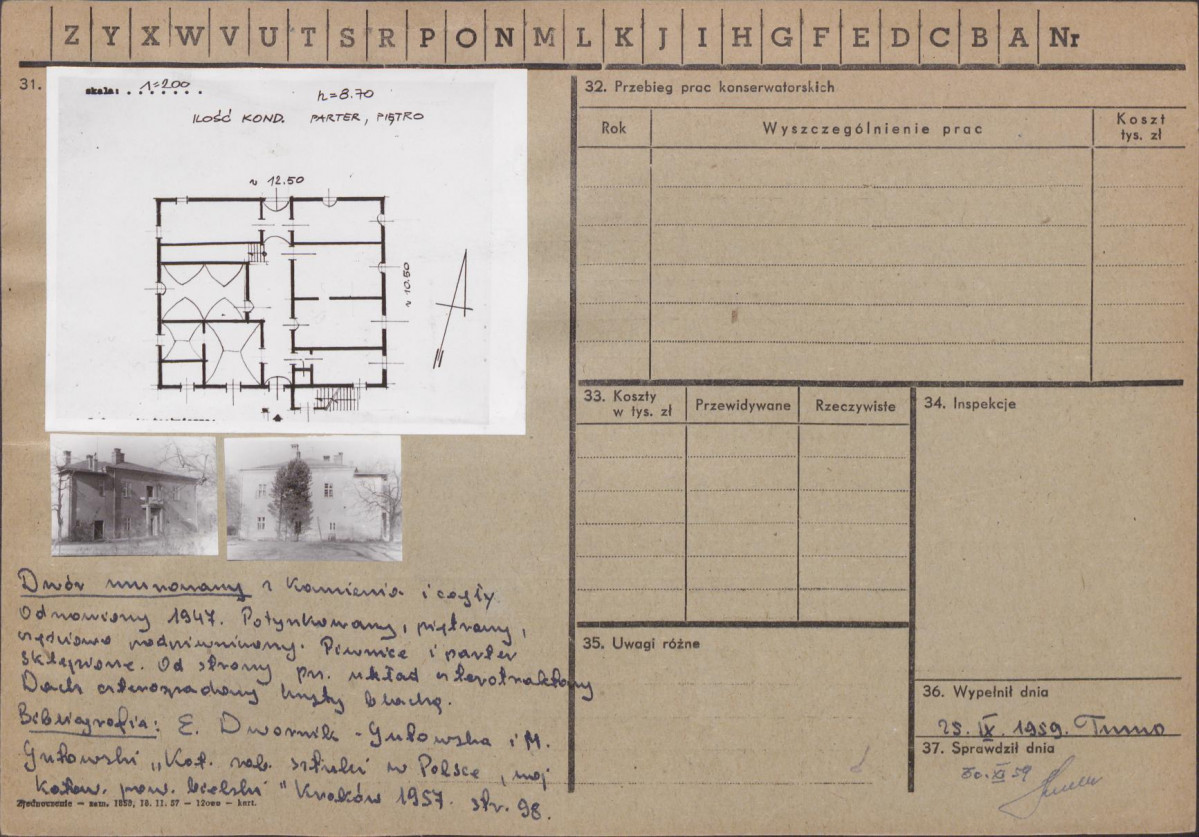 Z Y X W V U T S R P O N M L K J I H G F E D C B A Nr
31.
skala: 1=200
h=8.70
ILOŚĆ KOND. PARTER, PIĘTRO
~ 12.50
~ 10.50
Dwór murowany z kamienia i cegły.
Odnowiony 1947. Potynkowany, piętrowy,
częściowo podpiwniczony. Piwnice i parter
sklepione. Od strony pn. układ czterotraktowy
Dach czterospadowy kryty blachą.
Bibliografia: E. Dwornik-Gutowska i M.
Gutowski „Kat. zab. sztuki w Polsce, woj
katow. pow. bielski" Kraków 1957. str. 98.
Zjednoczenie — zam. 1859, 15. 11. 57 — 12000 — kart.
32. Przebieg prac konserwatorskich
Rok
Wyszczególnienie prac
Koszt
tys. zł
33. Koszty
w tys. zł
Przewidywane
Rzeczywiste
34. Inspekcje
35. Uwagi różne
36. Wypełnił dnia
25. IX. 1959.
37. Sprawdził dnia
30. XI 59